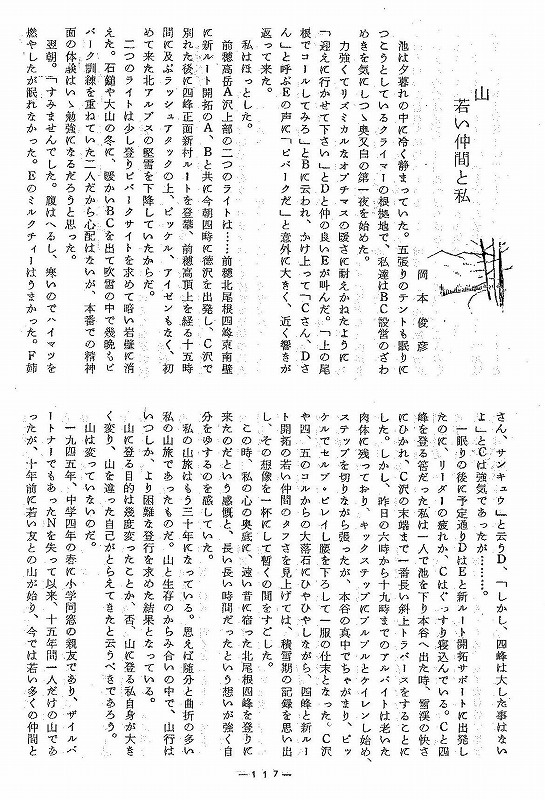 山
若い仲間と私
岡本俊彦
池は夕暮れの中に冷く静まっていた。五張りのテントも眠りに
つこうとしているクライマーの根拠地で、私達はBC設営のざわ
めきを気にしつゝ奥又白の第一夜を始めた。
力強くてリズミカルなオプチマスの暖さに耐えかねたように
「迎えに行かせて下さい」とDと仲の良いEが叫んだ。「上の尾
根でコールしてみろ」とBに云われ、かけ上って「Cさん、Dさ
ん」と呼ぶEの声に「ビバークだ」と意外に大きく、近く響きが
返って来た。
私はほっとした。
前穂高岳A沢上部の二つのライトは……前穂北尾根四峰東南壁
に新ルート開拓のA、Bと共に今朝四時に徳沢を出発し、C沢で
別れた後に四峰正面新村ルートを登攀、前穂高頂上を経る十五時
間に及ぶラッシュアタックの上、ピッケル、アイゼンもなく、初
めて来た北アルプスの堅雪を下降していたからだ。
二つのライトは少し登りビバークサイトを求めて暗い岩壁に消
えた。石鎚や大山の冬に、暖かいBCを出て吹雪の中で幾晩もビ
バーク訓練を重ねていた二人だから心配はないが、本番での精神
面の体験はいゝ勉強になるだろうと思った。
翌朝。「すみませんでした。腹はへるし、寒いのでハイマツを
燃やしたが眠れなかった。Eのミルクティーはうまかった。F姉
さん、サンキュウ」と云うD、「しかし、四峰は大した事はない
よ」とCは強気であったが……。
一眠りの後に予定通りDはEと新ルート開拓サポートに出発し
たのに、リーダーの疲れか、Cはぐっすり寝込んでいる。Cと四
峰を登る筈だった私は一人で池を下り本谷へ出た時、雪渓の快さ
にひかれ、C沢の末端まで一番長い斜上トラバースをすることに
した。しかし、昨日の六時から十九時までのアルバイトは老いた
肉体に残っており、キックステップにブルブルとケイレンし始め、
ステップを切りながら張ったが、本谷の真中でちゃがまり、ピッ
ケルでセルフ・ビレイし腰を下ろして一服の仕末となった。C沢
や四、五のコルからの大落石にひやひやしながら、四峰と新ルー
ト開拓の若い仲間のタフさを見上げては、積雪期の記録を思い出
し、その想像を一杯にして暫くの間をすごした。
この時、私の心の奥底に、遠い昔に宿った北尾根四峰を登りに
来たのだという感慨と、長い長い時間だったという想いが強く自
分をゆするのを感じていた。
私の山旅はもう三十年になっている。思えば随分と曲折の多い
私の山旅であったものだ。山と生存のからみ合いの中で、山行は
いつしか、より困難な登行を求めた結果となっている。
山に登る目的は幾度変ったことか、否、山に登る私自身が大き
く変り、山を違った自己がとらえてきたと云うべきであろう。
山は変っていないのだ。
一九四五年、中学四年の春に小学同窓の親友であり、ザイルパ
ートナーでもあったNを失って以来、十五年間一人だけの山であ
ったが、十年前に若い友との山が始り、今では若い多くの仲間と
—117—